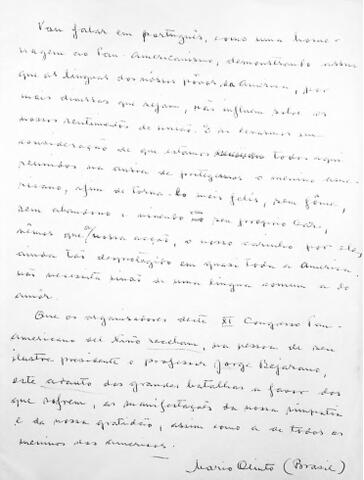 Vou falar em português, como uma home-
nagem ao Pan-Americanismo, demonstrando assim
que as linguas dos nossos póvos da América, por
mais diversas que sejam, não influem sobre os
nossos sentimentos de união. E se levarmos em
consideração de que estamos todos aqui
reunidos na ansia de protegermos o menino ame-
ricano, afim de torna-lo mais feliz, sem fôme,
sem abandono e vivendo em seu proprio lar,
vêmos que a nossa acção, o nosso carinho por ele,
ainda tão desprotegido em quasi toda a America,
não necessita sinão de uma lingua comum a do
amôr.
Que os organisadores deste XI Congresso Pan-
americano del Niño recebam, na pessoa de seu
ilustre presidente o professor Jorge Bejarano,
este das grandes batalhas a favor dos
que sofrem, as manifestações da nossa simpatia
e da nossa gratidão, assim como a de todos os
meninos das Americas.
Mario Olinto (Brasil)